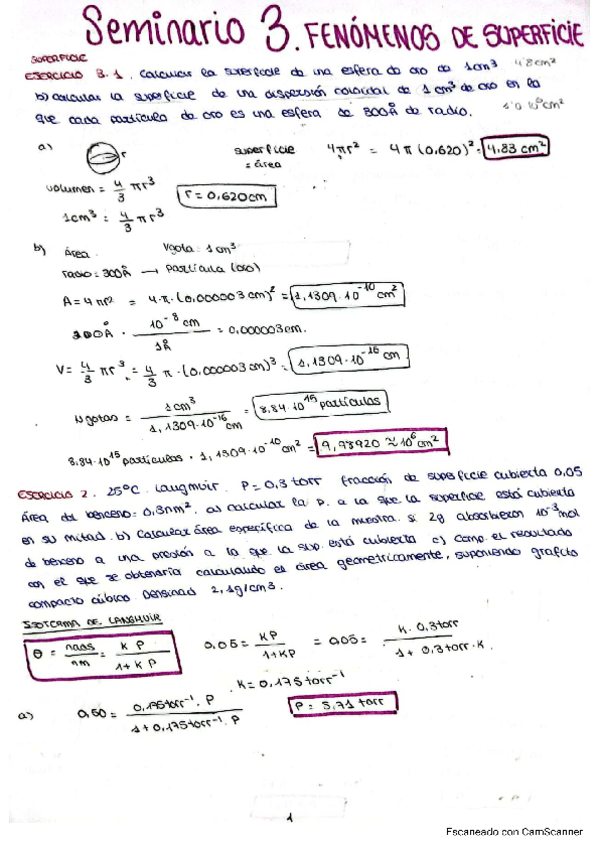 Seminario 3. FENÓMENOS DE SUPERFICIE
SUPERFICIE
EJERCICIO 3.1. Calcular la superficie de una esfera de oro de 1cm³ 4'8cm²
b) calcular la superficie de una dispersión coloidal de 1 cm³ de oro en la
que cada partícula de oro es una esfera de 300Å de radio. 1'0 10⁶cm²
a) r superficie = área 4πr² = 4π(0,620)² = 4,83 cm²
volumen = 4/3 πr³ r = 0,620cm
1cm³ = 4/3 πr³
b) Área Vgota = 1cm³
radio = 300Å → Partícula (oro)
A = 4πr² = 4·π·(0,000003cm)² = 1,1309·10⁻¹⁰ cm²
300Å · 10⁻⁸ cm / 1Å = 0,000003cm.
V = 4/3 πr³ = 4/3 π·(0,000003cm)³ = 1,1309·10⁻¹⁶ cm
Ngotas = 1cm³ / 1,1309·10⁻¹⁶cm = 8,84·10¹⁵ partículas
8,84·10¹⁵ partículas · 1,1309·10⁻¹⁰ cm² = 9,99920 ≈ 10⁶cm²
EJERCICIO 2. 25ºC. Langmuir. P = 0,3 torr fracción de superficie cubierta 0,05
Área del benceno = 0,3nm². a) calcular la p. a la que la superficie está cubierta
en su mitad. b) Calcular área específica de la muestra. si 2g absorbieron 10⁻³mol
de benceno a una presión a la que la sup. está cubierta c) comp. el resultado
con el que se obtendría calculando el área geométricamente, suponiendo grafito
compacto cúbico. Densidad 2,1g/cm³.
ISOTERMA DE LANGMUIR
θ = nads/nm = KP / 1+KP 0,05 = KP / 1+KP = 0,05 = K·0,3torr / 1+0,3torr·K.
K = 0,175torr⁻¹
a) 0,50 = 0,175torr⁻¹·P / 1+0,175torr⁻¹·P P = 5,71 torr
1
Escaneado con CamScanner